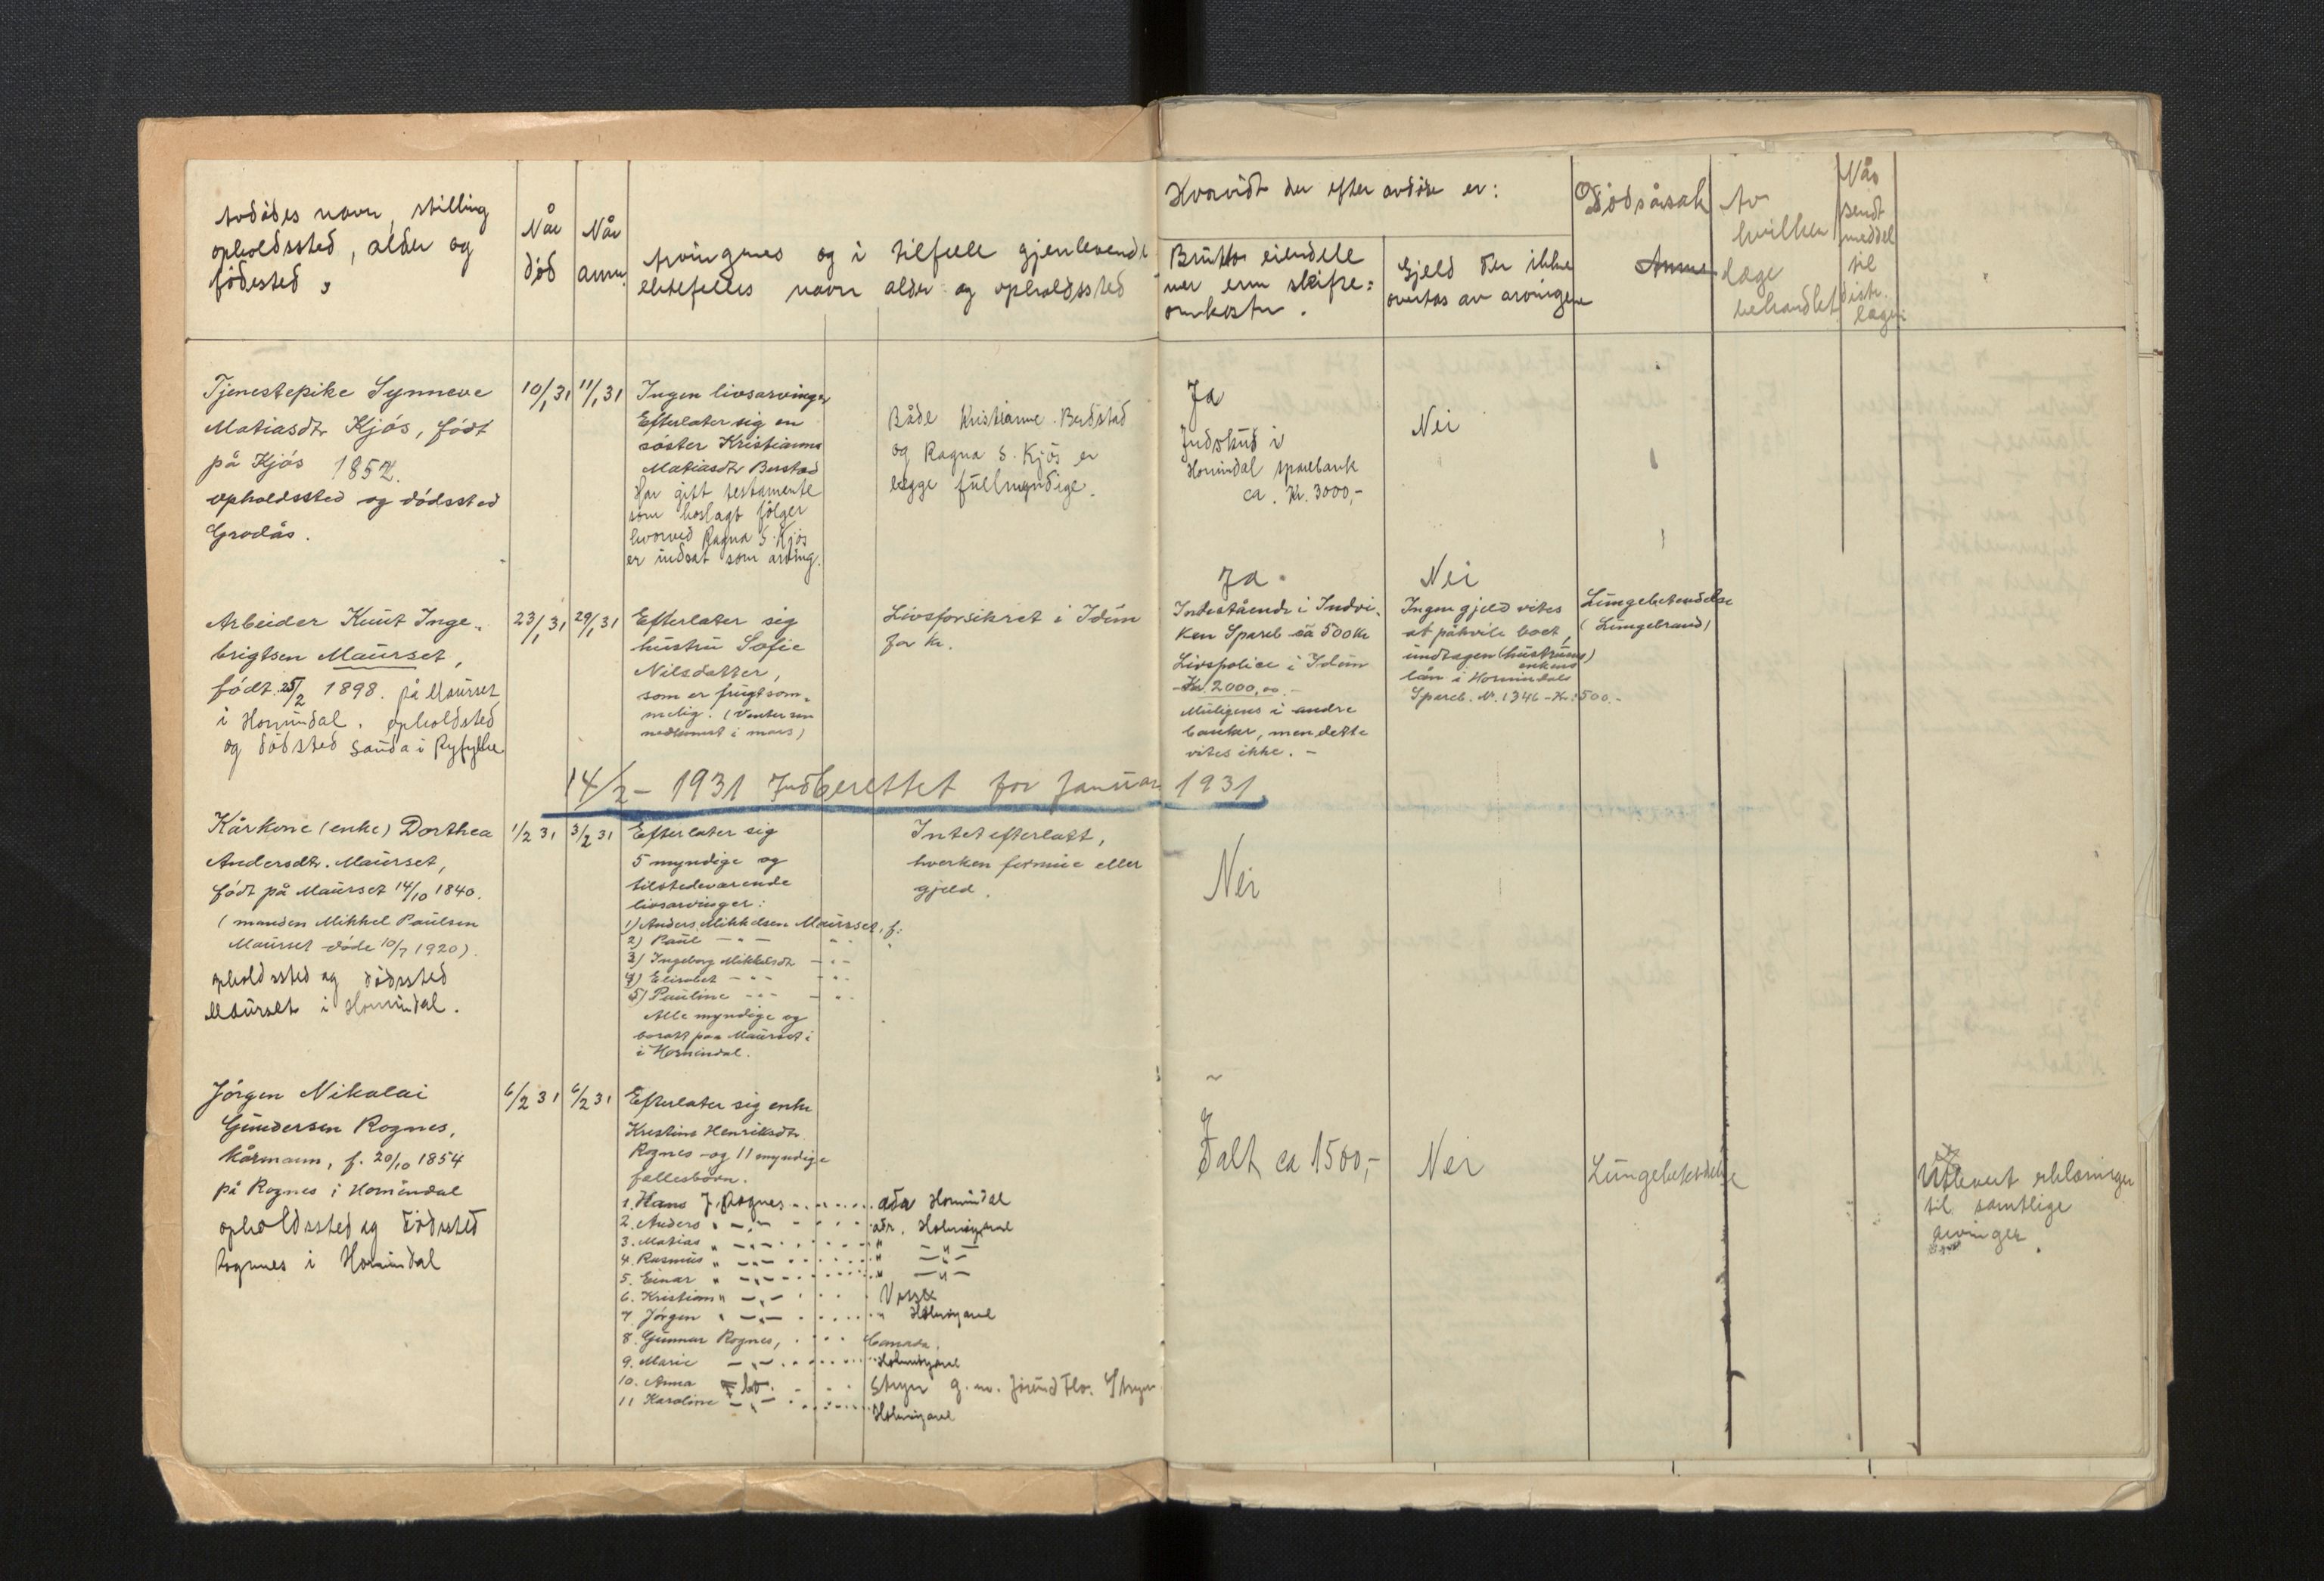 Avdødes navn, stilling
opholdssted, alder og
fødested.
Når
død
Når
anm.
Arvingenes og i tilfælle gjenlevende
ektefelles navn alder og opholdssted
Hvorvidt der efter avdøde er:
Brutto eiendele
mer enn skifte=
omkostn.
Gjeld der ikke
overtas av arvingene
Dødsårsak
Av
hvilken
læge
behandlet
Når
sendt
meddel
til
distr.
læge
Tjenestepike Synneve
Matiasdtr Kjøs, født
på Kjøs 1852.
opholdssted og dødssted
Grodås.
10/1 31
11/1 31
Ingen livsarvinger
Efterlater sig en
søster Kristianna
Matiasdtr Berstad
Har gitt testamente
som hoslagt følger
hvorved Ragna S. Kjøs
er indsat som arving.
Både Kristianne Berdstad
og Ragna S. Kjøs er
begge fullmyndige.
Ja
Indskud i
Hornindal sparebank
ca. Kr. 3000,-
Nei
Arbeider Knut Inge-
brigtsen Maurset,
født 25/2 1898. på Maurset
i Hornindal. opholdsted
og dødsted Sauda i Ryfylke
23/1 31
29/1 31
Efterlater sig
hustru Sofie
Nilsdatter,
som er frugtsom-
melig. (Venter sin
nedkomst i mars)
Livsforsikret i Idun
for kr.
Ja.
Indestående i Indvi-
ken Spareb ca 500 kr
Livspolice i Idun
Kr. 2000,00.-
Muligens i andre
banker, men dette
vites ikke.-
Nei
Ingen gjeld vites
at påhvile boet,
undtagen (hustruens)
enkens
lån i Hornindals
Spareb. Nr. 1346 - Kr. 500.-
Lungebetendelse
(Lungebrand)
14/2 - 1931 Indberettet for Januar 1931
Kårkone (enke) Dorthea
Andersdtr. Maurset,
født på Maurset 14/10 1840.
(manden Mikkel Paulsen
Maurset døde 10/7 1920).
opholdssted og dødssted
Maurset i Hornindal.
1/2 31
3/2 31
Efterlater sig
5 myndige og
tilstedeværende
livsarvinger:
1) Anders Mikkelsen Maurset, f:
2) Paul - " - "
3) Ingeborg Mikkelsdt - " -
4) Elisabet - " - - " -
5) Pauline - " - - " -
Alle myndige og
bosatt paa Maurset i
i Hornindal.
Intet efterlatt,
hverken formue eller
gjeld.
Nei
Jørgen Nikolai
Gundersen Rognes,
kårmann, f. 20/10 1854
på Rognes i Hornindal
opholdssted og dødssted
Rognes i Hornindal
6/2 31
6/2 31
Efterlater sig enke
Kristine Henriksdtr.
Rognes og 11 myndige
fellesbørn.
1. Hans J. Rognes ........ adr Hornindal
2. Anders " - " - ..... adr. Holmøyane
3. Matias " - " - ...... " - " -
4. Rasmus " - " - ...... " - " -
5. Einar " - " - ...... " - " -
6. Kristian " - " - .... Voss
7. Jørgen " - " - ...... " Holmøyane
8. Gunnar Rognes, .... Canada.
9. Marie - " - ....... Holmøyane
10. Anna Flo. ... Stryn g. m. Flo. Stryn
11 Karoline - " - ....... Holmøyane
I alt ca 1500,-
Nei
Lungebetendelse
Utlevert erklæringer
til samtlige
arvinger.